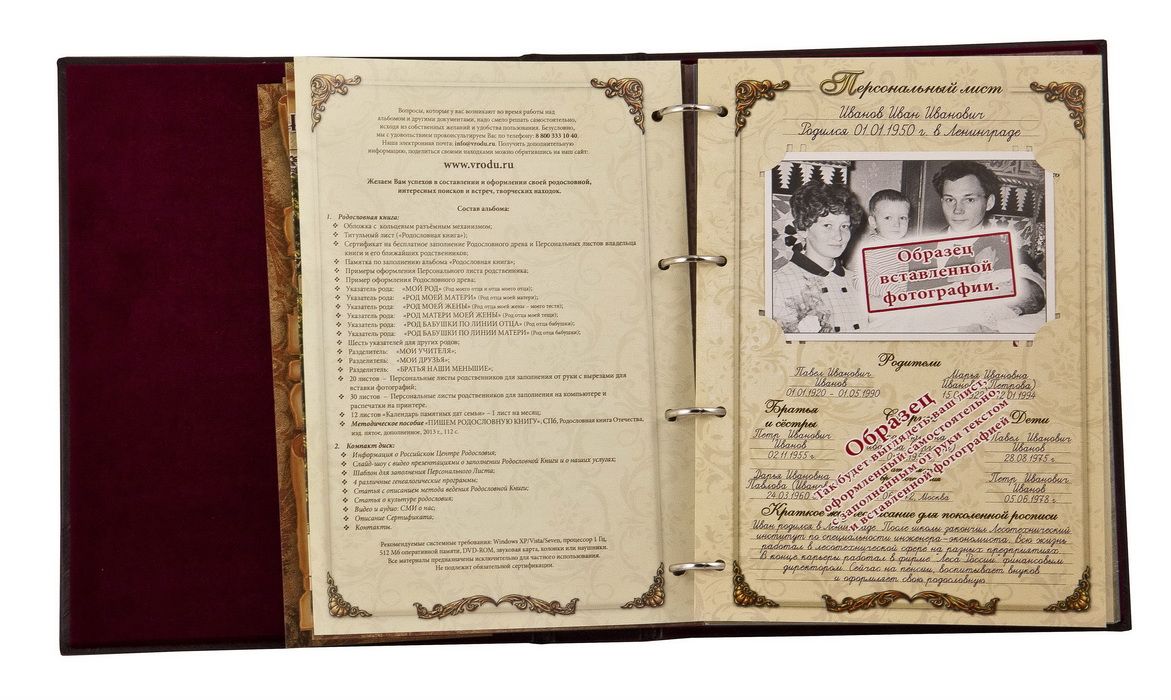 Вопросы, которые у вас возникают во время работы над
альбомом и другими документами, надо смело решать самостоятельно,
исходя из собственных желаний и удобства пользования. Безусловно,
мы с удовольствием проконсультируем Вас по телефону: 8 800 333 10 40.
Наша электронная почта: info@vrodu.ru. Получить дополнительную
информацию, поделиться своими находками можно обратившись на наш сайт:
www.vrodu.ru
Желаем Вам успехов в составлении и оформлении своей родословной,
интересных поисков и встреч, творческих находок.
Состав альбома:
1. Родословная книга:
❖ Обложка с кольцевым разъёмным механизмом;
❖ Титульный лист («Родословная книга»);
❖ Сертификат на бесплатное заполнение Родословного древа и Персональных листов владельца
книги и его ближайших родственников;
❖ Памятка по заполнению альбома «Родословная книга»;
❖ Примеры оформления Персонального листа родственника;
❖ Пример оформления Родословного древа;
❖ Указатель рода: «МОЙ РОД» (Род моего отца и отца моего отца);
❖ Указатель рода: «РОД МОЕЙ МАТЕРИ» (Род отца моей матери);
❖ Указатель рода: «РОД МОЕЙ ЖЕНЫ» (Род отца моей жены - моего тестя);
❖ Указатель рода: «РОД МАТЕРИ МОЕЙ ЖЕНЫ» (Род отца моей тещи);
❖ Указатель рода: «РОД БАБУШКИ ПО ЛИНИИ ОТЦА» (Род отца бабушки);
❖ Указатель рода: «РОД БАБУШКИ ПО ЛИНИИ МАТЕРИ» (Род отца бабушки);
❖ Шесть указателей для других родов;
❖ Разделитель: «МОИ УЧИТЕЛЯ»;
❖ Разделитель: «МОИ ДРУЗЬЯ»;
❖ Разделитель: «БРАТЬЯ НАШИ МЕНЬШИЕ»;
❖ 20 листов – Персональные листы родственников для заполнения от руки с вырезами для
вставки фотографий;
❖ 30 листов – Персональные листы родственников для заполнения на компьютере и
распечатки на принтере.
❖ 12 листов «Календарь памятных дат семьи» – 1 лист на месяц;
❖ Методическое пособие «ПИШЕМ РОДОСЛОВНУЮ КНИГУ», СПб, Родословная книга Отечества,
изд. пятое, дополненное, 2013 г., 112 с.
2. Компакт диск:
❖ Информация о Российском Центре Родословия;
❖ Слайд-шоу с видео презентациями о заполнении Родословной Книги и о наших услугах;
❖ Шаблон для заполнения Персонального Листа;
❖ 4 различные генеалогические программы;
❖ Статья с описанием метода ведения Родословной Книги;
❖ Статья о культуре родословия;
❖ Видео и аудио: СМИ о нас;
❖ Описание Сертификата;
❖ Контакты.
Рекомендуемые системные требования: Windows XP/Vista/Seven, процессор 1 Гц,
512 Мб оперативной памяти, DVD-ROM, звуковая карта, колонки или наушники.
Все материалы предназначены исключительно для частного использования.
Не подлежит обязательной сертификации.
Персональный лист
Иванов Иван Иванович
Родился 01.01.1950 г. в Ленинграде
Образец
вставленной
фотографии.
Родители
Павел Иванович
Иванов
01.01.1920 - 01.05.1990
Марья Ивановна
Иванова (Петрова)
1994
Братья
и сёстры
Петр Иванович
Иванов
02.11.1955 г.
Дарья Ивановна
Павлова
24.03.1960
Москва
Дети
Павел Иванович
Иванов
28.08.1975 г.
Петр Иванович
Иванов
05.06.1978 г.
Образец
Так будет выглядеть ваш лист,
оформленный самостоятельно,
с заполненным от руки текстом
и вставленной фотографией
Краткое для поколенной росписи
Иван родился в После школы закончил Лесотехнический
институт по специальности инженера-экономиста. Всю жизнь
работал в лесотехнической сфере на разных предприятиях.
В конце карьеры работал в фирме "Леса России" финансовым
директором. Сейчас на пенсии, воспитывает внуков
и оформляет свою родословную